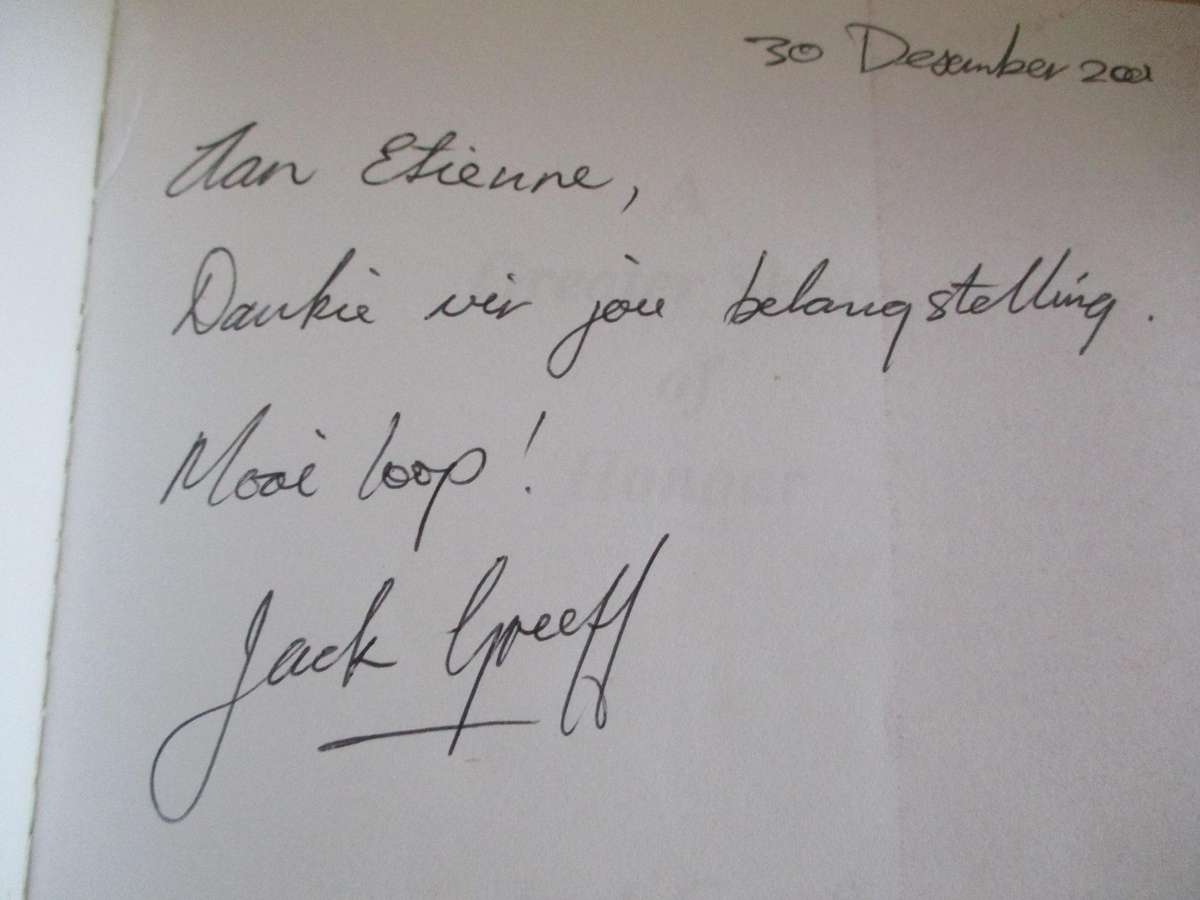 30 Desember 2001
Aan Etienne,
Dankie vir jou belangstelling.
Mooi loop!
Jack Greeff